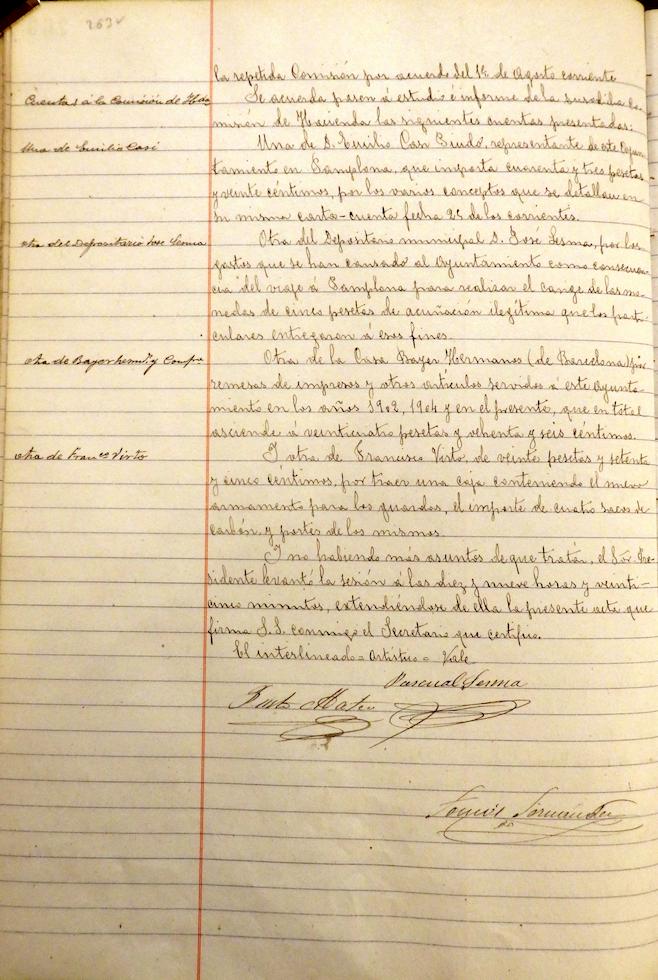 263v
la repetida Comisión por acuerdo del 1º de Agosto corriente
Cuentas á la Comisión de Hda
Se acuerda pasen á estudio é informe de la susodicha Co-
misión de Hacienda las siguientes cuentas presentadas:
Una de Emilio Casi
Una de D. Emilio Casi Ciudó, representante de este Ayun-
tamiento en Pamplona, que importa cuarenta y tres pesetas
y veinte céntimos, por los varios conceptos que se detallan en
su misma carta-cuenta fecha 25 de los corrientes.
otra del Depositario Jose Lesma
Otra del Depositario municipal D. José Lesma, por los
gastos que se han causado al Ayuntamiento como consecuen-
cia del viaje á Pamplona para realizar el cange de las mo-
nedas de cinco pesetas de acuñación ilegítima que los parti-
culares entregaron á esos fines.
otra de Bayer herms. y Compª
Otra de la Casa Bayer Hermanos (de Barcelona) por
remesas de impresos y otros artículos servidos á este Ayunta-
miento en los años 1902, 1904 y en el presente, que en total
asciende á veinticuatro pesetas y ochenta y seis céntimos.
otra de Franco Virto
Y otra de Francisco Virto, de veinte pesetas y setenta
y cinco céntimos, por traer una caja conteniendo el nuevo
armamento para los guardas, el importe de cuatro sacos de
carbón y portes de los mismos.
Y no habiendo más asuntos de que tratar, el Sor. Pre-
sidente levantó la sesión á las diez y nueve horas y veinti-
cinco minutos, extendiéndose de ella la presente acta que
firma S.S. conmigo el Secretario que certifico.
El interlineado = Artístico = Vale
Pascual Lesma
Justo Mateo